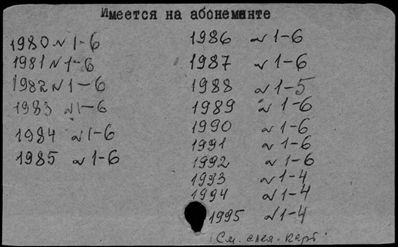 Имеется на абонементе
1980 № 1-6
1981 № 1-6
1982 № 1-6
1983 № 1-6
1984 № 1-6
1985 № 1-6
1986 № 1-6
1987 № 1-6
1988 № 1-5
1989 № 1-6
1990 № 1-6
1991 № 1-6
1992 № 1-6
1993 № 1-4
1994 № 1-4
1995 № 1-4
См. след. карт.